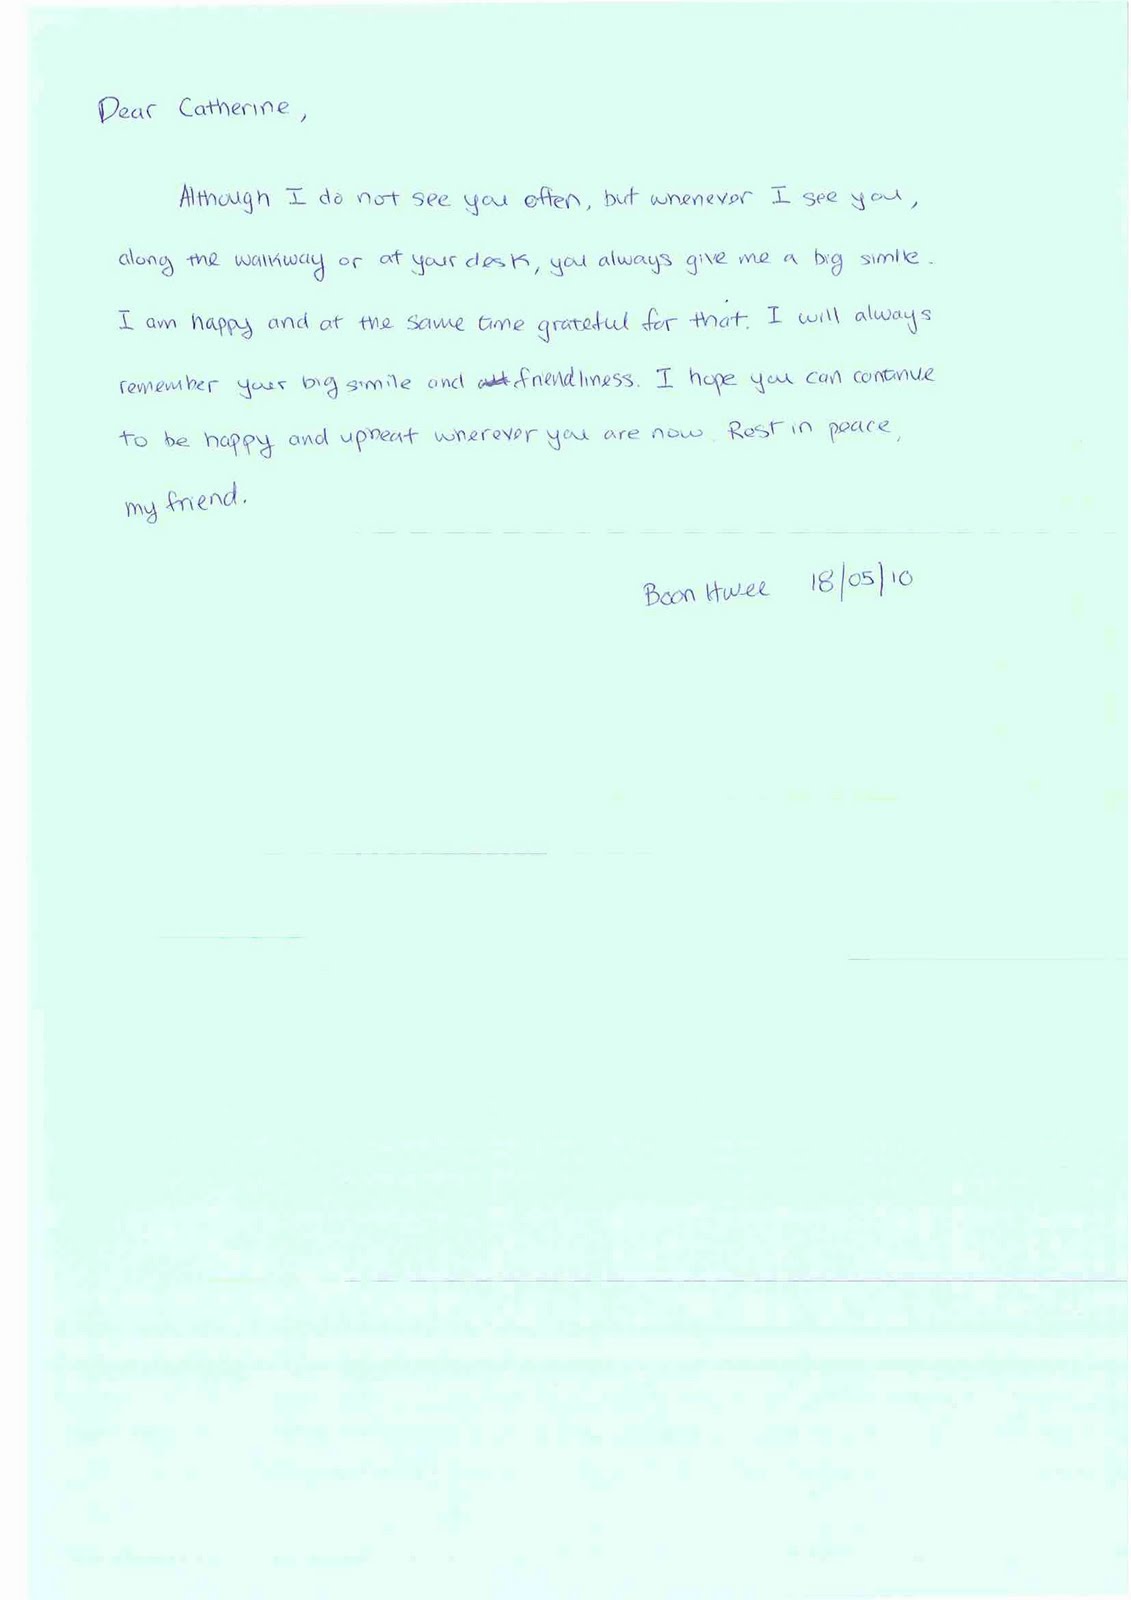 Dear Catherine,
Although I do not see you often, but whenever I see you,
along the walkway or at your desk, you always give me a big simile.
I am happy and at the same time grateful for that. I will always
remember your big simile and friendliness. I hope you can continue
to be happy and upbeat wherever you are now. Rest in peace,
my friend.
Boon Hwee 18/05/10